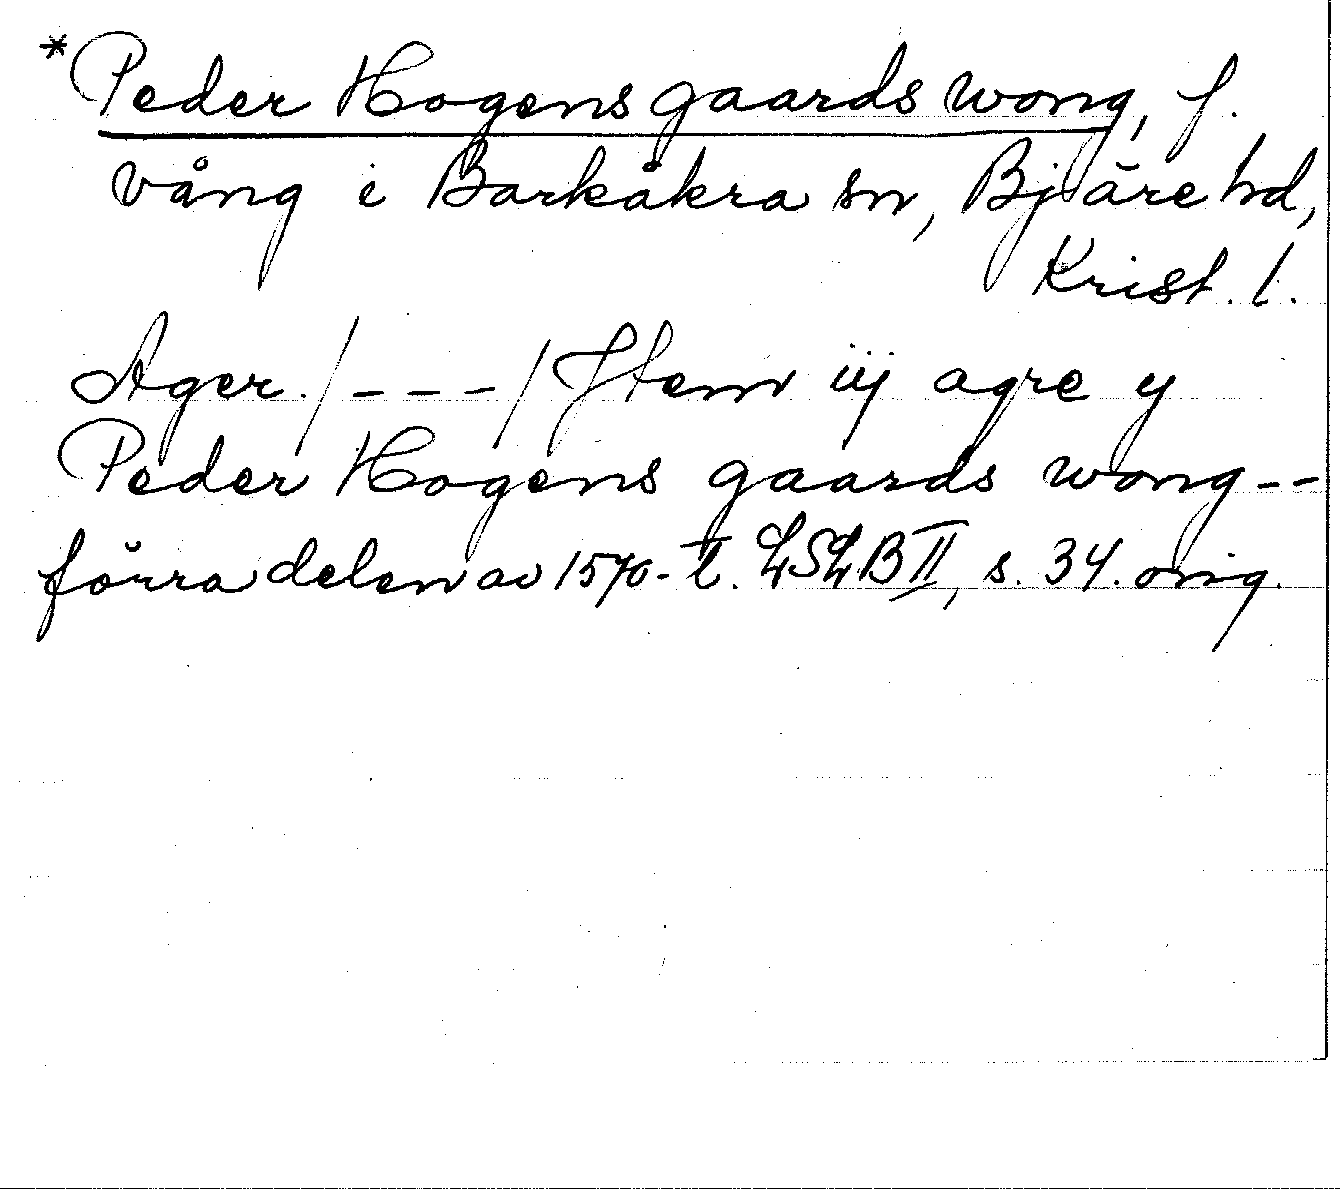 *Peder Hogens gaards wong, f.
vång i Barkåkra sn, Bjäre hd,
Krist. l.
Ager. /---/ Jtem iij agre y
Peder Hogens gaards wong--
förra delen av 1570-t. LSLB II, s. 34. orig.